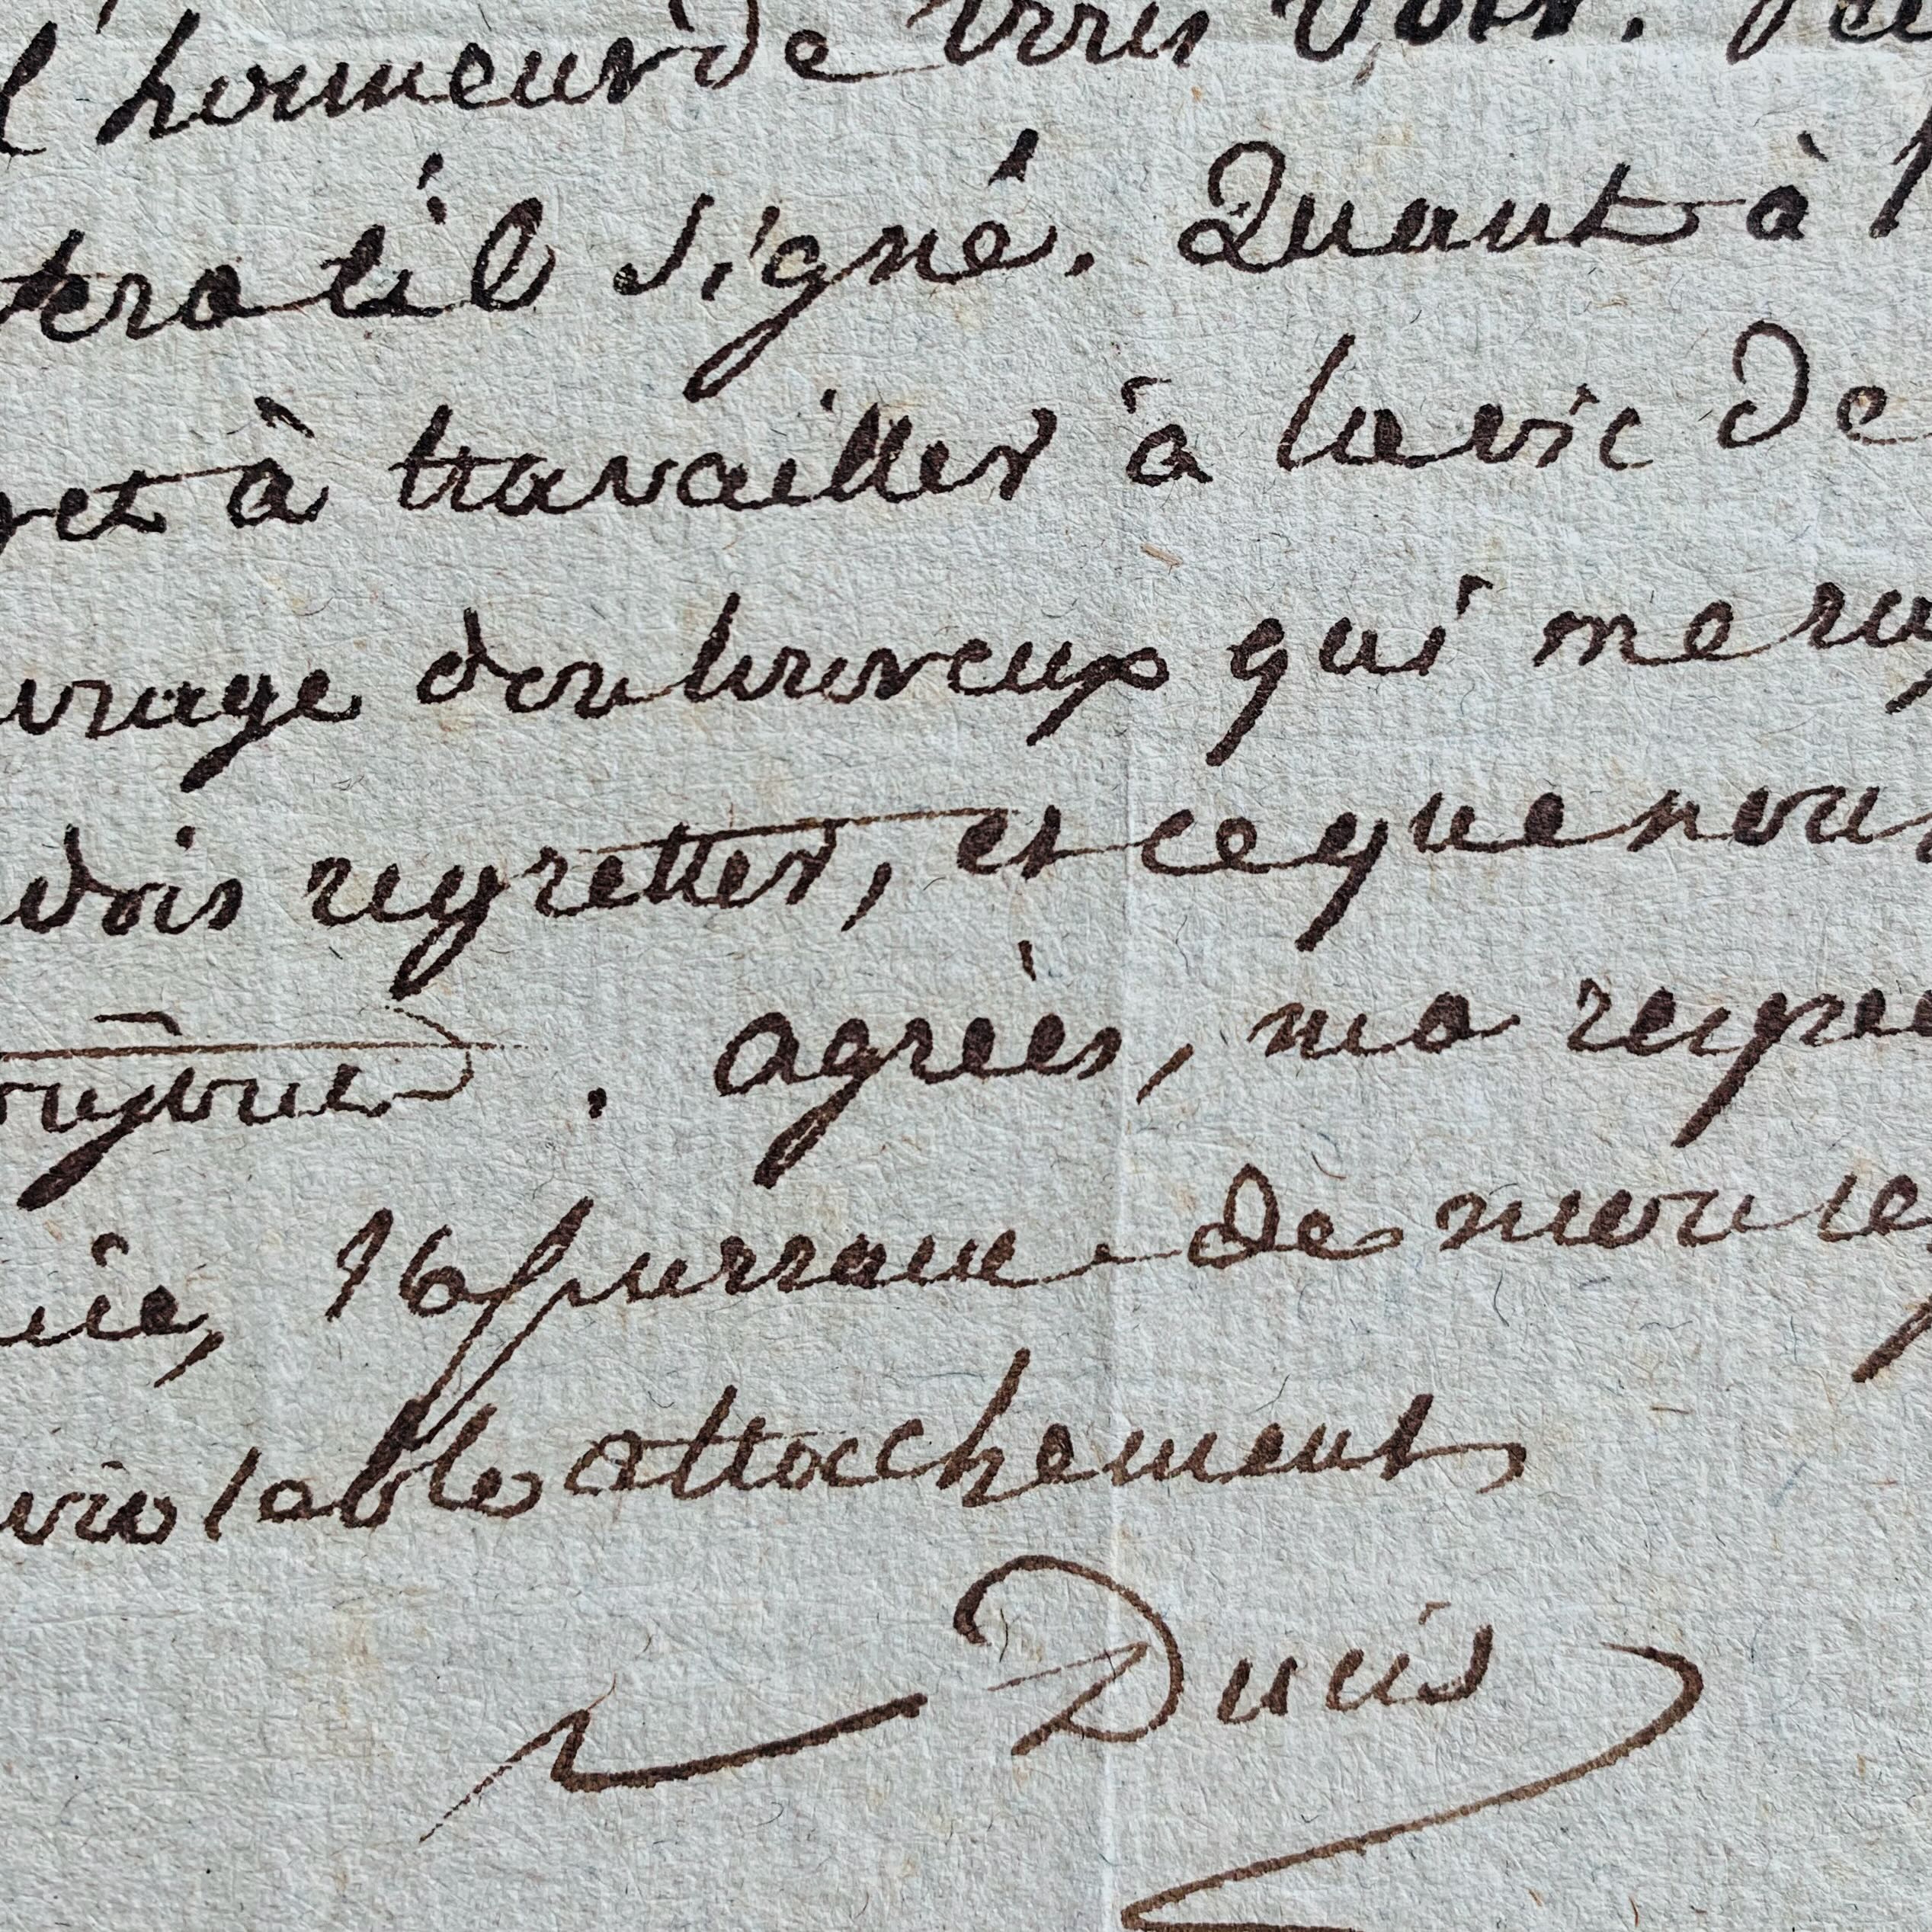 l'honneur de vous voir. Je
tera til signé. Quant à
et à travailler à la vie de
uvrage douloureux qui me
dois regretter, et ce que nous
toujours. agrées, ma respec
mie, l'assurance de mon res
violable attachement
Ducis